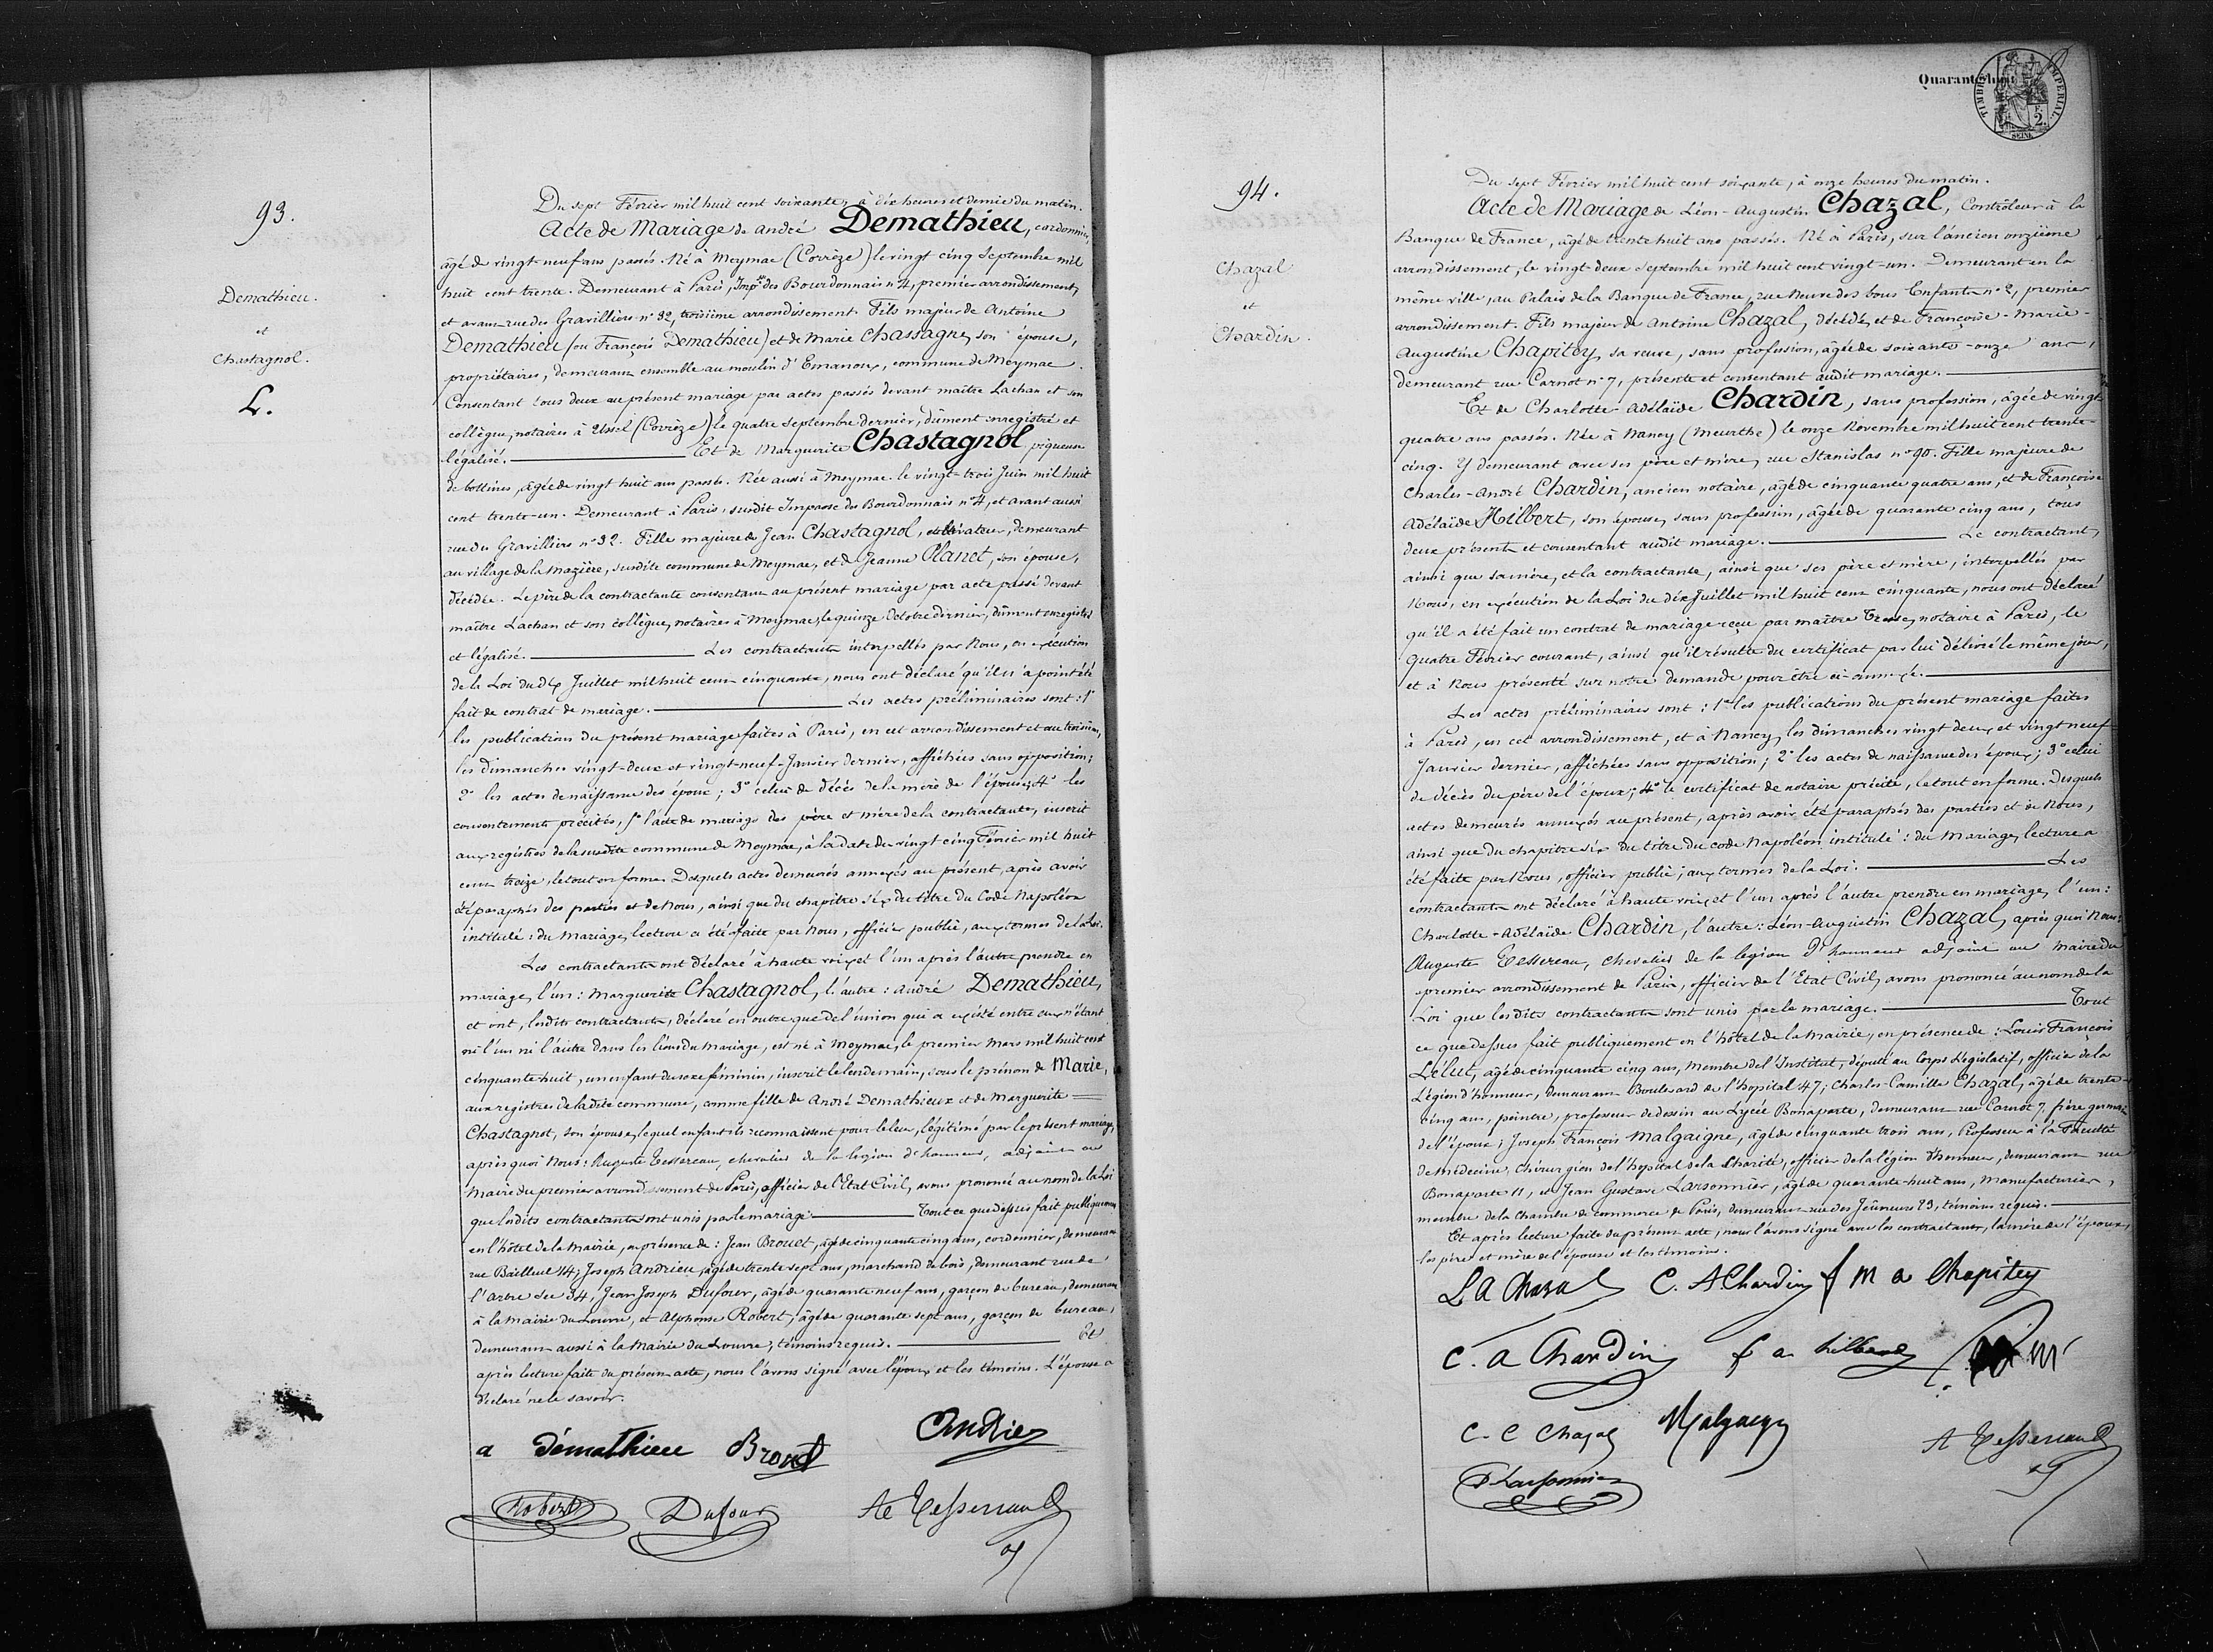 93.
Demathieu.
et
Chastagnol.
L.
Du sept Février mil huit cent soixante, à dix heures et demie du matin.
Acte de Mariage de André Demathieu, cordonnier,
âgé de vingt-neuf ans passés. Né à Meymac (Corrèze) le vingt cinq Septembre mil
huit cent trente. Demeurant à Paris, Impse des Bourdonnais n° 4, premier arrondissement,
et avant rue des Gravilliers n° 32, troisième arrondissement. Fils majeur de Antoine
Demathieu (ou François Demathieu) et de Marie Chassagne, son épouse,
propriétaires, demeurant ensemble au moulin d'Emanoux, commune de Meymac.
Consentant tous deux au présent mariage par actes passés devant maître Lachan et son
collègue, notaires à Ussel (Corrèze) le quatre Septembre dernier, dûment enregistré et
légalisé. Et de Marguerite Chastagnol, piqueuse
de bottines, âgée de vingt huit ans passés. Née aussi à Meymac le vingt-trois Juin mil huit
cent trente-un. Demeurant à Paris, susdit Impasse des Bourdonnais n° 4, et avant aussi
rue des Gravilliers n° 32. Fille majeure de Jean Chastagnol, cultivateur, demeurant
au village de la Mazière, susdite commune de Meymac, et de Jeanne Planet, son épouse,
décédée. Le père de la contractante consentant au présent mariage par acte passé devant
maître Lachan et son collègue, notaires à Meymac, le quinze Octobre dernier, dûment enregistré
et légalisé. Les contractants interpellés par Nous, en exécution
de la Loi du dix Juillet mil huit cent cinquante, nous ont déclaré qu'il n'a point été
fait de contrat de mariage. Les actes préliminaires sont : 1°
les publications du présent mariage faites à Paris, en cet arrondissement et au troisième,
les dimanches vingt-deux et vingt-neuf Janvier dernier, affichées sans opposition;
2° les actes de naissance des époux; 3° celui de décès de la mère de l'épouse; 4° les
consentements précités, 5° l'acte de mariage des père et mère de la contractante, inscrit
aux registres de la susdite commune de Meymac, à la date du vingt-cinq Février mil huit
cent treize, le tout en forme. Desquels actes demeurés annexés au présent, après avoir
été paraphés des parties et de Nous, ainsi que du chapitre six du titre du Code Napoléon
intitulé : du Mariage, lecture a été faite par Nous, officier public, aux termes de la Loi.
Les contractants ont déclaré à haute voix et l'un après l'autre prendre en
mariage, l'un : Marguerite Chastagnol, l'autre : André Demathieu,
et ont, lesdits contractants, déclaré en outre que de l'union qui a existé entre eux n'étant
ni l'un ni l'autre dans les liens du mariage, est né à Meymac, le premier Mars mil huit cent
cinquante huit, un enfant du sexe féminin, inscrit le lendemain, sous le prénom de Marie,
aux registres de la dite commune, comme fille de André Demathieux et de Marguerite
Chastagnot, son épouse, lequel enfant ils reconnaissent pour le leur, légitimé par le présent mariage,
après quoi Nous : Auguste Tessereau, chevalier de la légion d'honneur, adjoint au
Maire du premier arrondissement de Paris, officier de l'Etat Civil, avons prononcé au nom de la Loi
que lesdits contractants sont unis par le mariage. Tout ce que dessus fait publiquement
en l'hôtel de la Mairie, en présence de : Jean Brouet, âgé de cinquante cinq ans, cordonnier, demeurant
rue Bailleul 14; Joseph Andrieu, âgé de trente sept ans, marchand de bois, demeurant rue de
l'arbre sec 34, Jean Joseph Dufour, âgé de quarante neuf ans, garçon de bureau, demeurant
à la Mairie du Louvre, et Alphonse Robert, âgé de quarante sept ans, garçon de bureau,
demeurant aussi à la Mairie du Louvre, témoins requis. Et
après lecture faite du présent acte, nous l'avons signé avec l'époux et les témoins. L'épouse a
déclaré ne le savoir.
a démathieu Brouet Andrieu
Robert Dufour Ate Tessereau
Quarante-huit
TIMBRE IMPÉRIAL
F. 2.
SEINE
94.
Chazal
et
Chardin.
Du sept Février mil huit cent soixante, à onze heures du matin.
Acte de Mariage de Léon-Augustin Chazal, Contrôleur à la
Banque de France, âgé de trente huit ans passés. Né à Paris, sur l'ancien onzième
arrondissement, le vingt-deux Septembre mil huit cent vingt-un. Demeurant en la
même ville, au Palais de la Banque de France, rue Neuve des bons Enfants n° 2, premier
arrondissement. Fils majeur de Antoine Chazal, décédé, et de Françoise-Marie-
Augustine Chapitey, sa veuve, sans profession, âgée de soixante-onze ans,
demeurant rue Carnot n° 7, présente et consentant audit mariage.
Et de Charlotte Adélaïde Chardin, sans profession, âgée de vingt
quatre ans passés. Née à Nancy (Meurthe) le onze Novembre mil huit cent trente-
cinq. Y demeurant avec ses père et mère, rue Stanislas n° 90. Fille majeure de
Charles-André Chardin, ancien notaire, âgé de cinquante quatre ans, et de Françoise
Adélaïde Hilbert, son épouse, sans profession, âgée de quarante cinq ans, tous
deux présents et consentant audit mariage. Le contractant,
ainsi que sa mère, et la contractante, ainsi que ses père et mère, interpellés par
Nous, en exécution de la Loi du dix Juillet mil huit cent cinquante, nous ont déclaré
qu'il a été fait un contrat de mariage reçu par maître notaire à Paris, le
quatre Février courant, ainsi qu'il résulte du certificat par lui délivré le même jour,
et à Nous présenté sur notre demande pour être ci-annexé.
Les actes préliminaires sont : 1° les publications du présent mariage faites
à Paris, en cet arrondissement, et à Nancy, les dimanches vingt deux et vingt neuf
Janvier dernier, affichées sans opposition; 2° les actes de naissance des époux; 3° celui
de décès du père de l'époux; 4° le certificat de notaire précité, le tout en forme. Desquels
actes demeurés annexés au présent, après avoir été paraphés des parties et de Nous,
ainsi que du chapitre six du titre du code Napoléon intitulé : du Mariage, lecture a
été faite par Nous, officier public, aux termes de la Loi. Les
contractants ont déclaré à haute voix et l'un après l'autre prendre en mariage, l'un :
Charlotte-Adélaïde Chardin, l'autre : Léon-Augustin Chazal, après quoi Nous :
Auguste Tessereau, chevalier de la legion d'honneur adjoint au Maire du
premier arrondissement de Paris, officier de l'Etat Civil, avons prononcé au nom de la
Loi que lesdits contractants sont unis par le mariage. Tout
ce que dessus fait publiquement en l'hôtel de la Mairie, en présence de : Louis François
Lélut, âgé de cinquante cinq ans, Membre de l'Institut, député au Corps Législatif, officier de la
Légion d'honneur, demeurant Boulevard de l'hopital 47; Charles-Camille Chazal, âgé de trente-
cinq ans, peintre, professeur de dessin au Lycée Bonaparte, demeurant rue Carnot 7, frère germain
de l'époux; Joseph François Malgaigne, âgé de cinquante trois ans, Professeur à la Faculté
de Médecine, Chirurgien de l'hopital de la Charité, officier de la légion d'honneur, demeurant rue
Bonaparte 11, et Jean Gustave Larsonnier, âgé de quarante huit ans, Manufacturier,
membre de la Chambre de commerce de Paris, demeurant rue des Jeûneurs 23, témoins requis.
Et après lecture faite du présent acte, nous l'avons signé avec les contractants, la mère de l'époux,
les père et mère de l'épouse et les témoins.
L A Chazal C. A Chardin f m a Chapitey
C. a Chardin f a hilbert
C. C Chazal Malgaigne
G Larsonnier A Tessereau